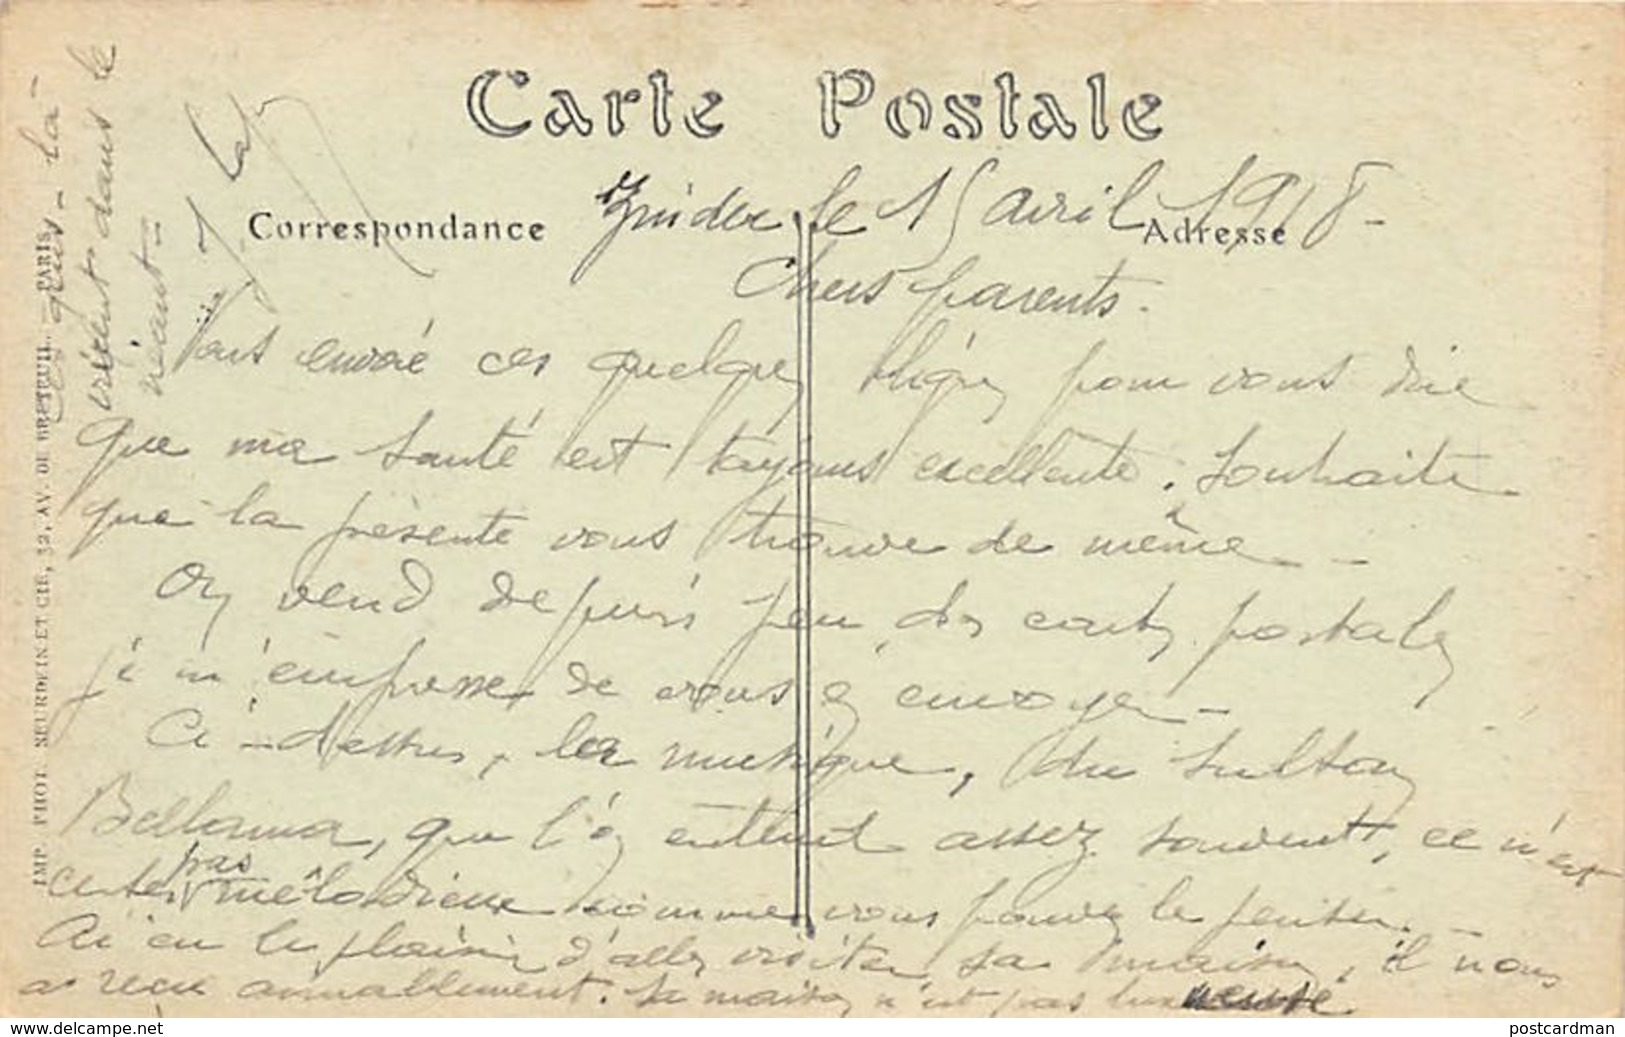 Carte Postale
Correspondance
Adresse
Guider le 15 avril 1918 -
Chers parents.
Vous envoié ces quelques lignes pour vous dire
que ma santé est toujours excellente. Souhaite
que la présente vous trouve de même -
On vend depuis peu des cartes postales
je m'empresse de vous en envoyer -
Ci-dessus, la musique, du sultan
Bellama, que l'on entend assez souvent, ce n'est
certes pas mélodieux comme vous pouvez le penser.
Ai eu le plaisir d'aller visiter sa maison, il nous
a recu aimablement. Sa maison n'est pas
gens - la -
vivent dans le
néant -
IMP. PHOT. NEURDEIN ET CIE, 52, AV. DE BRETEUIL. — PARIS.
www.delcampe.net
postcardman